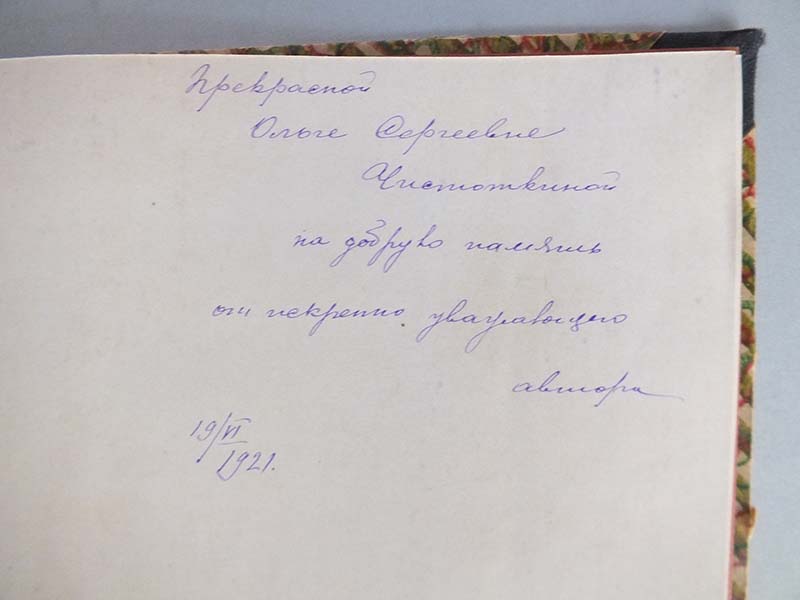 Прекрасной
Ольге Сергеевне
Чистоткиной
на добрую память
от искренно уважающего
автора
19/VI
1921.